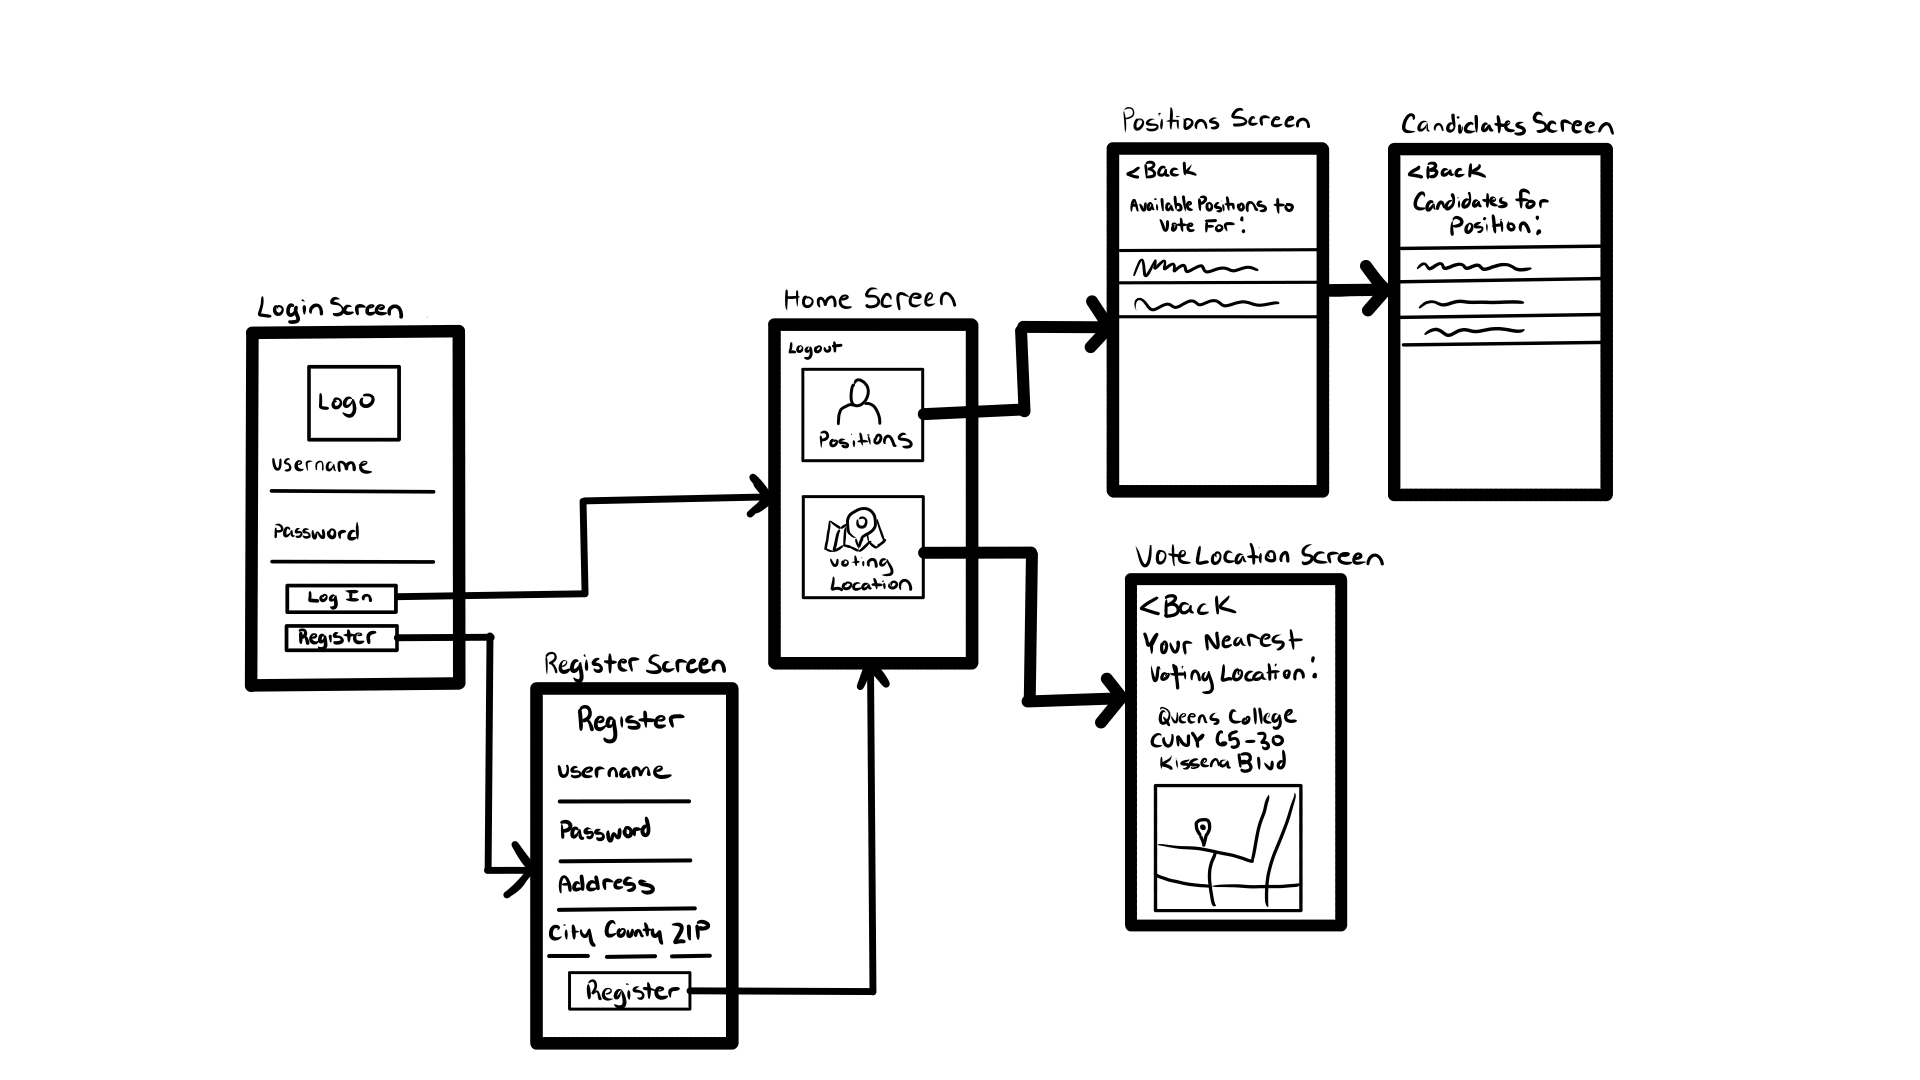 Login Screen
Logo
Username
Password
Log In
Register
Register Screen
Register
Username
Password
Address
City County ZIP
Register
Home Screen
Logout
Positions
Voting
Location
Positions Screen
<Back
Available Positions to
Vote For:
Candidates Screen
<Back
Candidates for
Position:
Vote Location Screen
<Back
Your Nearest
Voting Location:
Queens College
CUNY 65-30
Kissena Blvd